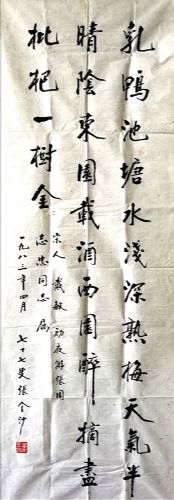 乳鴨池塘水淺深熟梅天氣半
晴陰東園載酒西園醉摘盡
枇杷一樹金
宋人戴敏初夜游張園
志忠同志屬
一九八三年四月
七十七叟張人沙